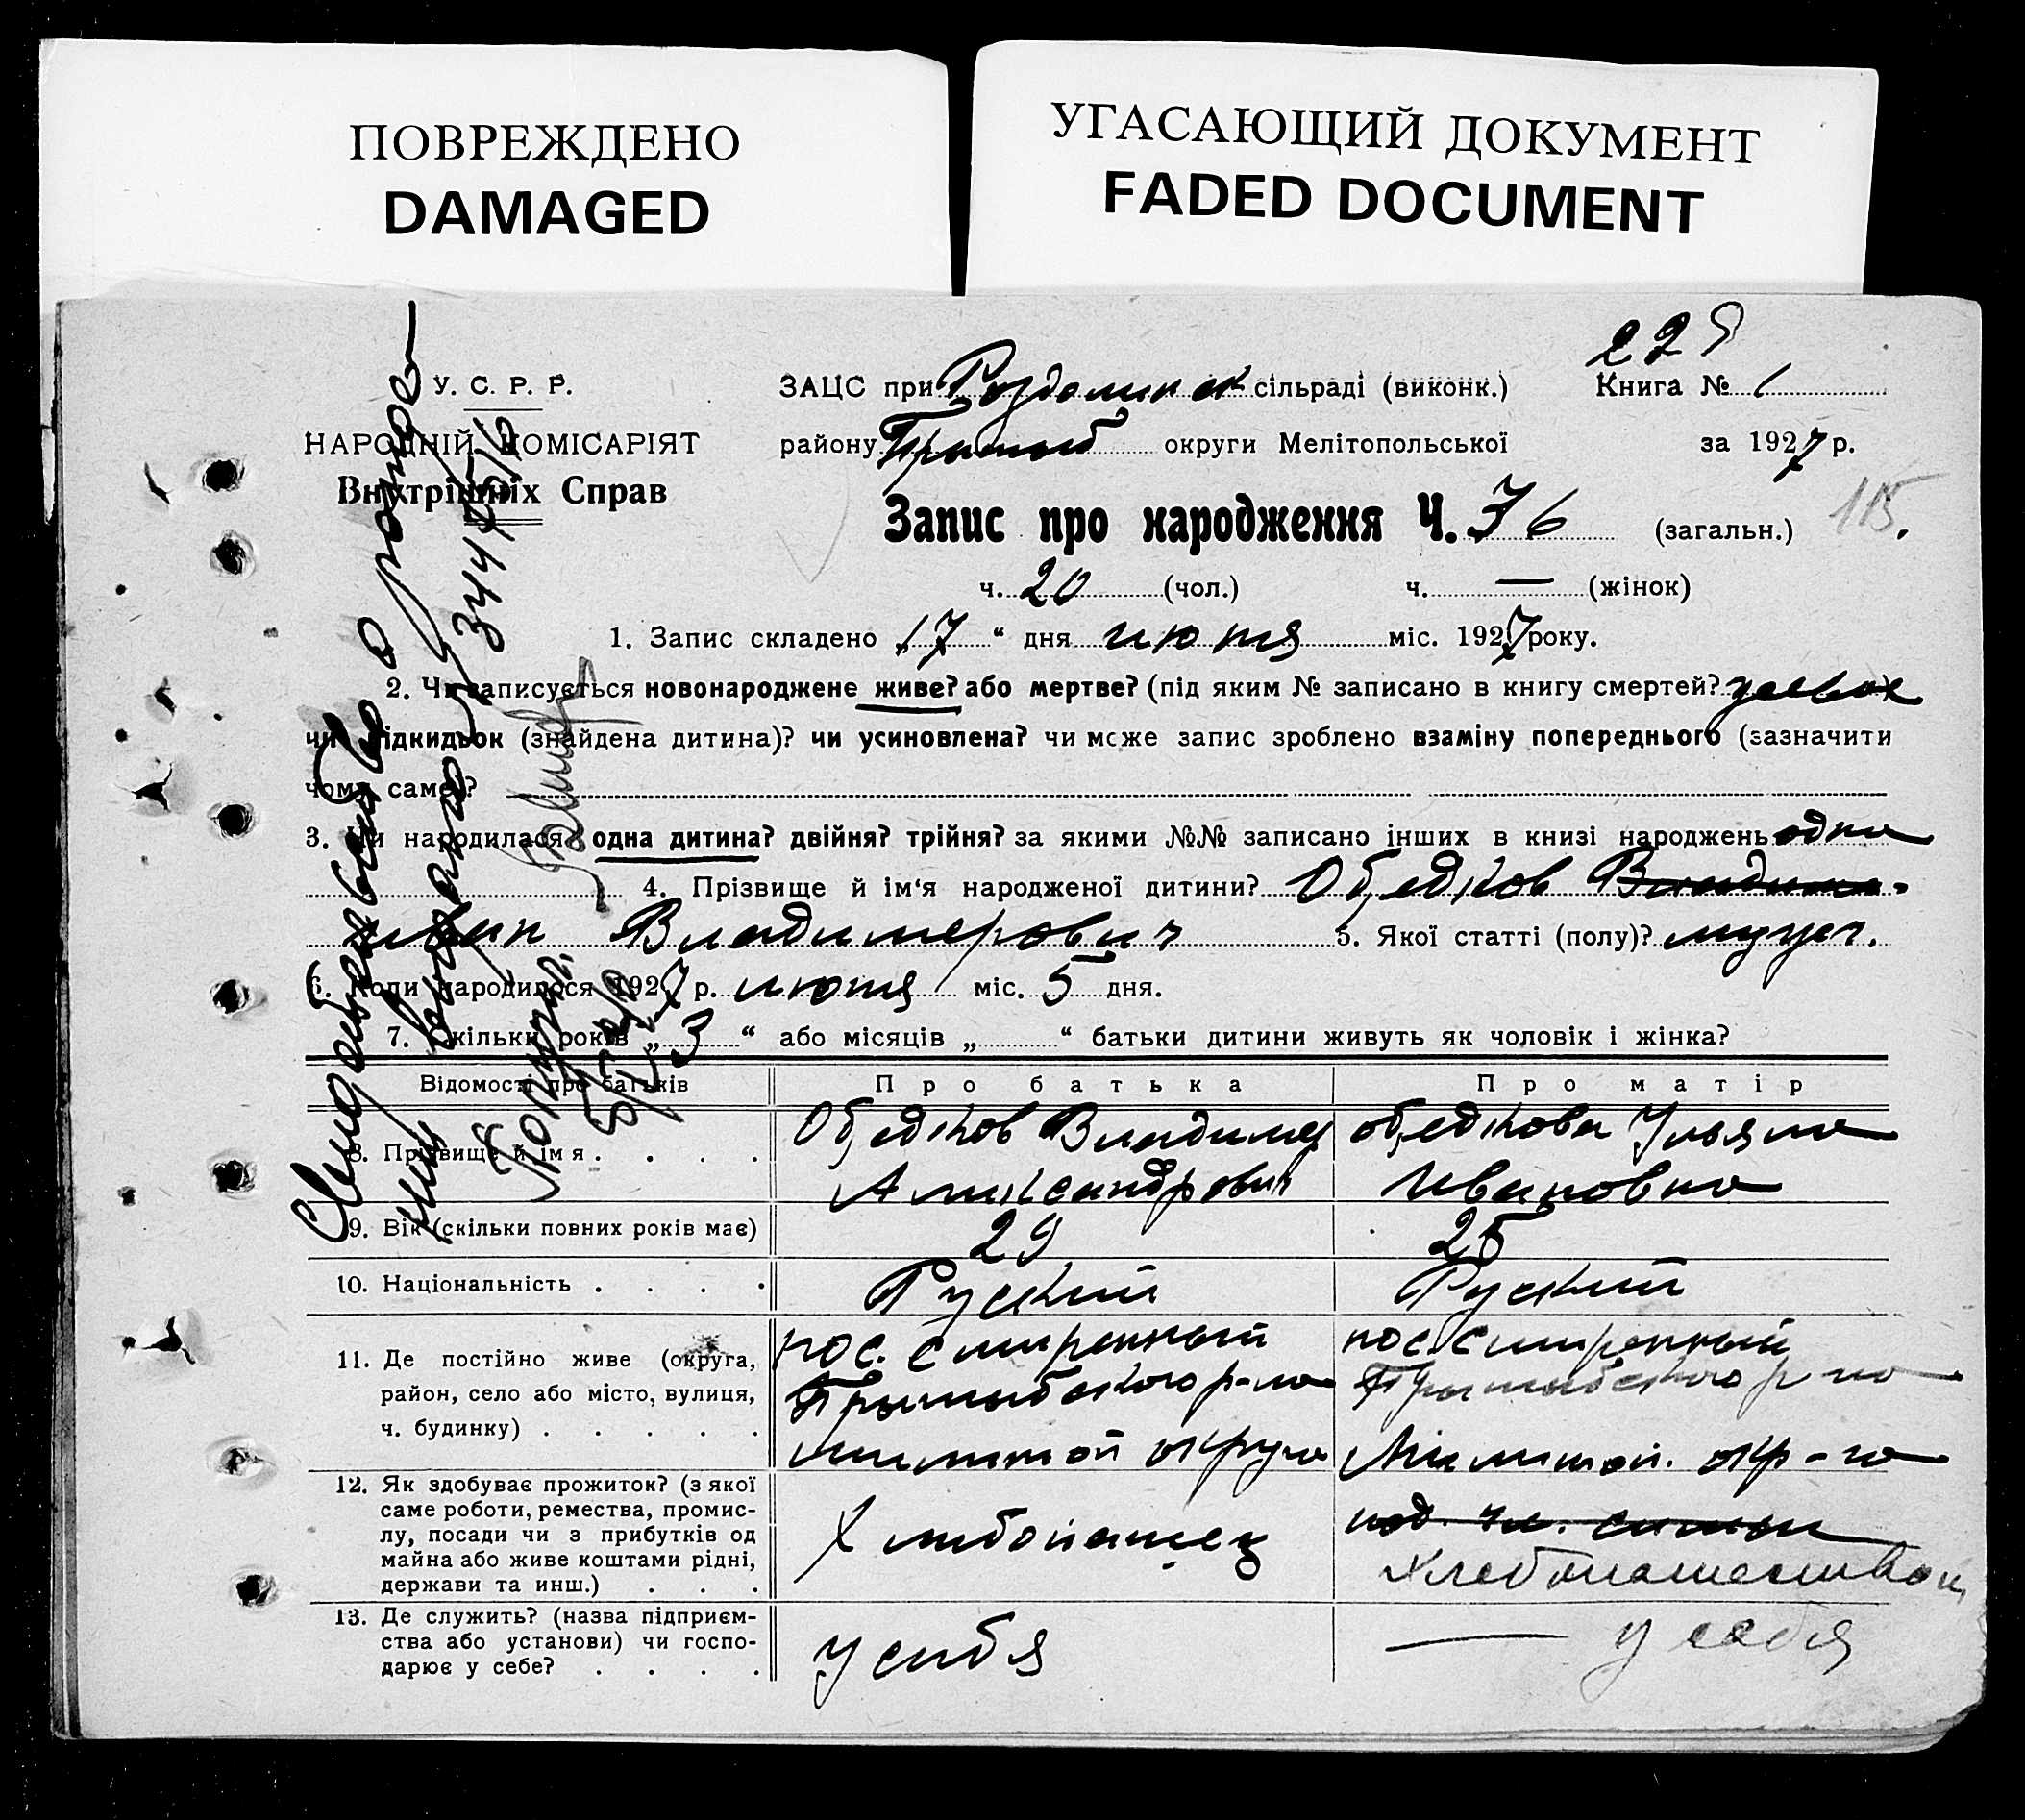 ПОВРЕЖДЕНО
DAMAGED
УГАСАЮЩИЙ ДОКУМЕНТ
FADED DOCUMENT
У. С. Р. Р.
НАРОДНІЙ КОМІСАРІЯТ
Внутрішніх Справ
ЗАЦС при сільраді (виконк.)
району Пришиб округи Мелітопольської
Книга № 1
за 1927 р.
115.
Запис про народження Ч. 76 (загальн.)
ч. 20 (чол.) ч. — (жінок)
1. Запис складено „17“ дня июня міс. 1927 року.
2. Чи записується новонароджене живе? або мертве? (під яким № записано в книгу смертей?
чи підкидьок (знайдена дитина)? чи усиновлена? чи може запис зроблено взаміну попереднього (зазначити
чому саме)?
3. Чи народилася одна дитина? двійня? трійня? за якими №№ записано інших в книзі народжень одна
4. Прізвище й ім‘я народженої дитини? Обєдков
Иван Владимерович 5. Якої статті (полу)? мущ.
6. Коли народилося 1927 р. июня міс. 5 дня.
7. Скільки років „3“ або місяців „ “ батьки дитини живуть як чоловік і жінка?
Відомості про батьків
Про батька
Про матір
8. Прізвище й імя . . . .
Обєдков Владимер
Александрович
обєдкова Ульяна
Ивановна
9. Вік (скільки повних років має)
29
25
10. Національність . . . .
Руский
Руский
11. Де постійно живе (округа,
район, село або місто, вулиця,
ч. будинку) . . . . .
пос. смиренный
Пришибского р-на
округа
пос. смиренный
Пришибского р-на
Мелитоп. окр-га
12. Як здобуває прожиток? (з якої
саме роботи, ремества, промис-
лу, посади чи з прибутків од
майна або живе коштами рідні,
держави та инш.) . . .
Хлибопашец
под. чл. симьи
хлебопашеством
13. Де служить? (назва підприєм-
ства або установи) чи госпо-
дарює у себе? . . . .
у сибя
— у себя
Свидетельство о рожде-
нии выдано